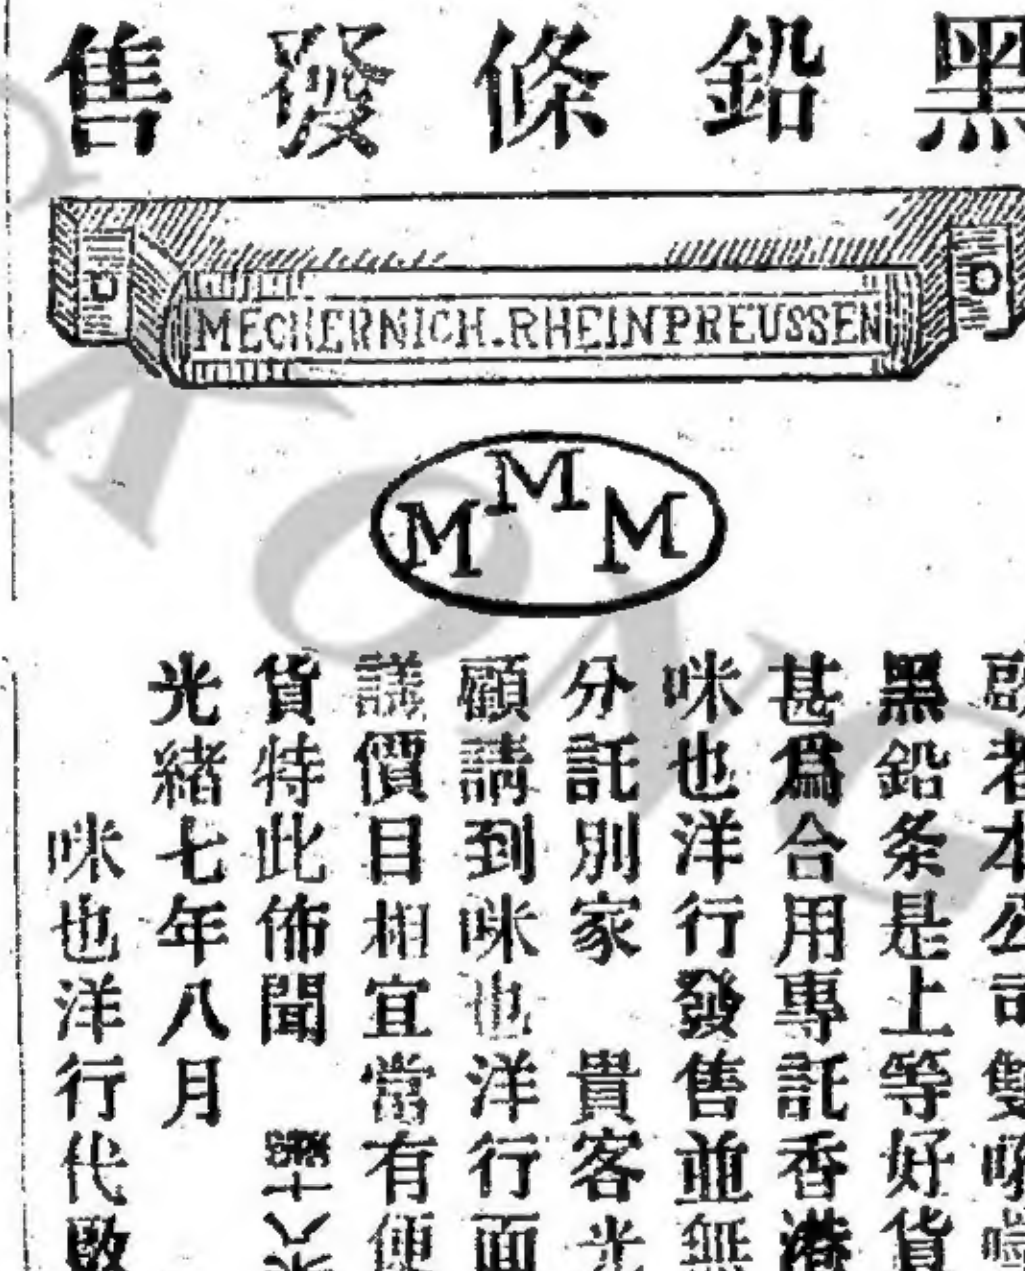 黑鉛條發售
MECHERNICH.RHEINPREUSSEN
M M M
啟者本公司雙
黑鉛条是上等好貨
甚為合用專託香港
咪也洋行發售並無
分託別家 貴客光
顧請到咪也洋行面
議價目相宜當有便
貨特此佈聞
光緒七年八月
咪也洋行代啟